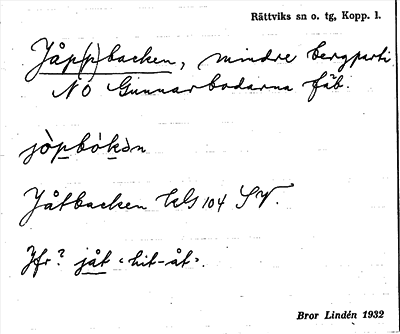 Rättviks sn o. tg, Kopp. l.
Jåp(p)backen, mindre bergparti
NO Gunnarbodarna fäb.
jòpbòkən
Jåtbacken 104 SV.
Jfr? jåt ‹hit-åt›.
Bror Lindén 1932